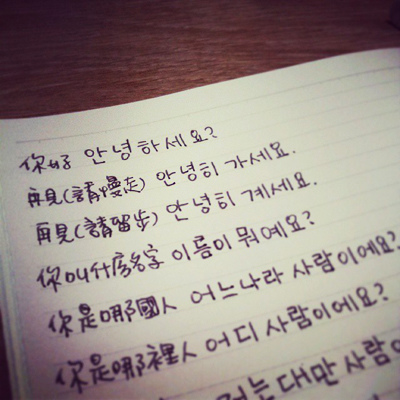 你好 안녕하세요?
再見(請慢走) 안녕히 가세요.
再見(請留步) 안녕히 계세요.
你叫什麼名字 이름이 뭐예요?
你是哪國人 어느나라 사람이에요?
你是哪裡人 어디 사람이에요?
는 대만 사람